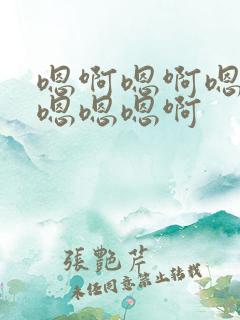 嗯啊嗯啊嗯
嗯嗯嗯啊
張艷芹
未经同意禁止转载